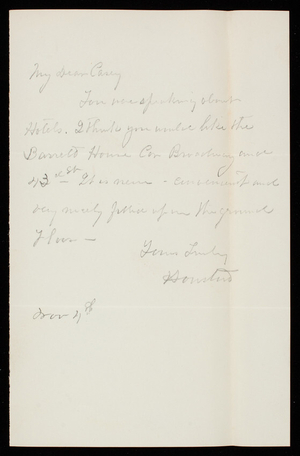 My Dear Casey
You were speaking about
Hotels. I think you would like the
Barrett House Cor Broadway and
43rd St — It is new - convenient and
very nicely fitted up on the ground
Floor —
Yours Truly
Nov 4th